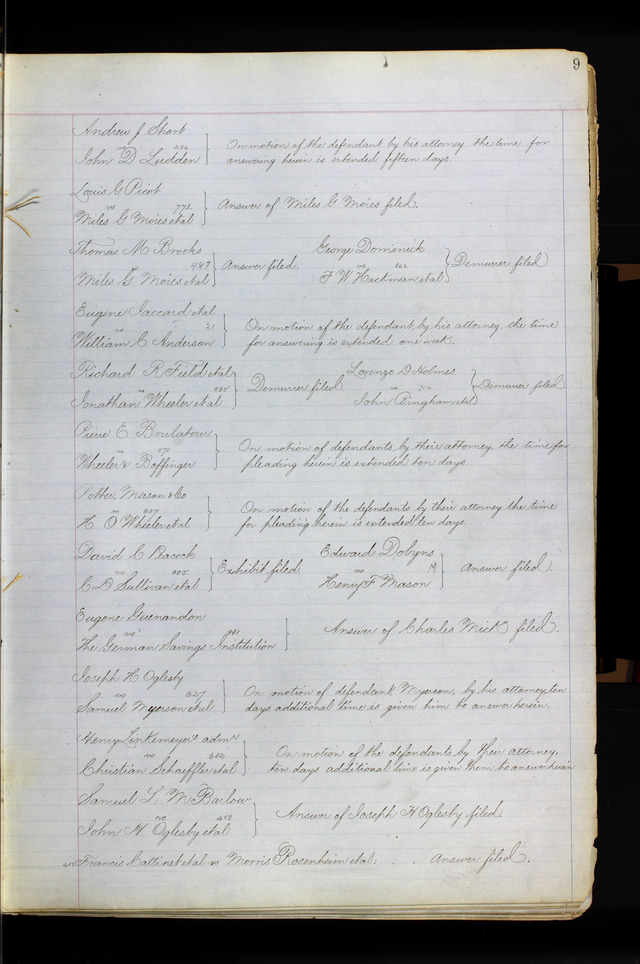 9
Andrew J Short
vs
John D Ludden
On motion of the defendant by his attorney the time for
answering herein is extended fifteen days.
Louis C Picot
vs 773.
Miles G Moies et al
Answer of Miles G Moies filed.
Thomas M Brooks
vs 487
Miles G Moies et al
Answer filed.
George Domenick
vs
F W Hackman et al
Demurrer filed
Eugene Jaccard et al
vs 21
William C Anderson
On motion of the defendant, by his attorney, the time
for answering is extended one week.
Richard R Field et al
vs
Jonathan Wheeler et al
Demurrer filed.
Lorenzo D Holmes
vs
John Bingham et al
Demurrer filed
Pierre E
vs
Wheeler & Boffinger
On motion of defendants, by their attorney, the time for
pleading herein is extended ten days.
Potter, Mason & Co
vs 607
H O Wheeler et al
On motion of the defendants by their attorney the time
for pleading herein is extended ten days.
David C Peacock
vs
C D Sullivan et al
Exhibit filed.
Edward Dobyns
vs 19
Henry F Mason
Answer filed.
Eugene Guenandon
vs
The German Savings Institution
Answer of Charles Mick filed.
Joseph H Oglesby
vs 627
Samuel Myerson et al
On motion of defendant, Myerson, by his attorney, ten
days additional time is given him to answer herein.
Henry Linkemeyer's admr
vs
Christian Schaeffler et al
On motion of the defendants by their attorney,
ten days additional time is given them to answer herein
Samuel L M Barlow
vs 453
John H Oglesby et al
Answer of Joseph H Oglesby filed.
Francis Cattinet et al vs Morris Rosenheim et al: . . Answer filed.